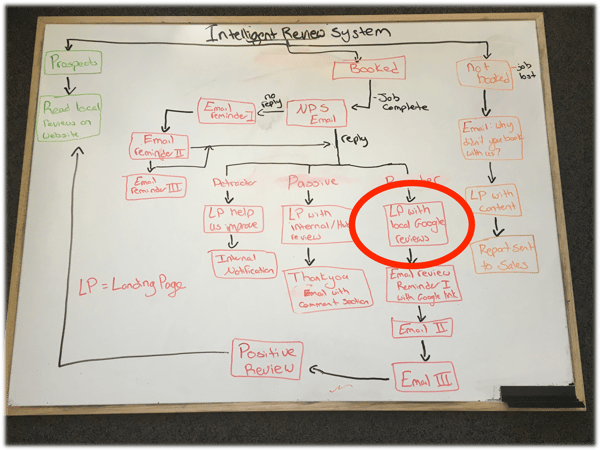 Intelligent Review System
Prospects
Booked
Not
booked
job
lost
Read local
Reviews on
Website
Job
Complete
NPS
Email
no
reply
Email
reminder I
Email
reminder II
Email
reminder III
reply
Email: why
didn't you book
with us?
Detractor
Passive
LP help
us improve
LP with
internal/
review
LP with
local Google
reviews
LP with
content
Internal
Notification
Thankyou
Email with
comment section
Email review
Reminder I
with Google link
Report sent
to Sales
LP = Landing Page
Email II
Email III
Positive
Review